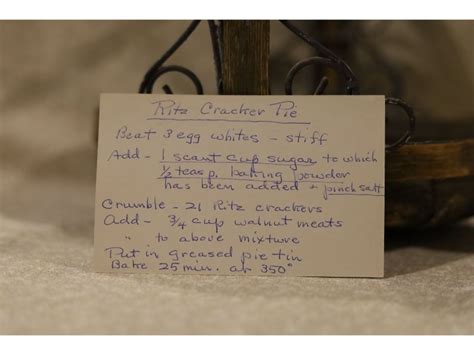 Ritz Cracker Pie
Beat 3 egg whites - stiff
Add - 1 scant cup sugar to which
1/2 teasp. baking powder
has been added + pinch salt
Crumble - 21 Ritz crackers
Add - 3/4 cup walnut meats
" to above mixture
Put in greased pie tin
Bake 25 min. at 350°